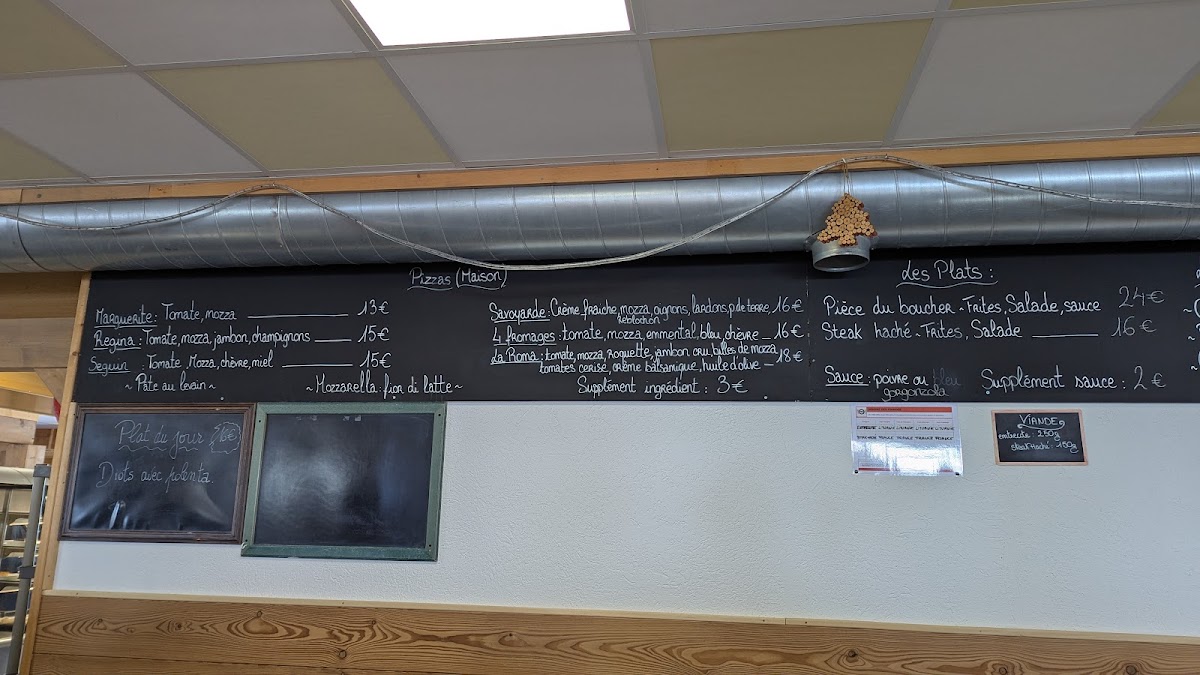 Pizzas (Maison)
Marguerite : Tomate, mozza 13€
Regina : Tomate, mozza, jambon, champignons 15€
Seguin : Tomate, Mozza, chèvre, miel 15€
~ Pâte au levain ~
~ Mozzarella: fior di latte ~
Savoyarde : Crème fraiche, mozza, oignons, lardons, p.de terre, 16€
Reblochon
4 fromages : tomate, mozza, emmental, bleu, chèvre 16€
La Roma : tomate, mozza, Roquette, jambon cru, billes de mozza 18€
tomates cerise, crème balsamique, huile d'olive
Supplément ingrédient : 3€
Les Plats :
Pièce du boucher - Frites, Salade, sauce 24€
Steak haché - Frites, Salade 16€
Sauce : poivre ou bleu
gorgonzola
Supplément sauce : 2€
Plat du jour
Diots avec polenta.
VIANDE
entrecôte : 250g
steak Haché : 150g